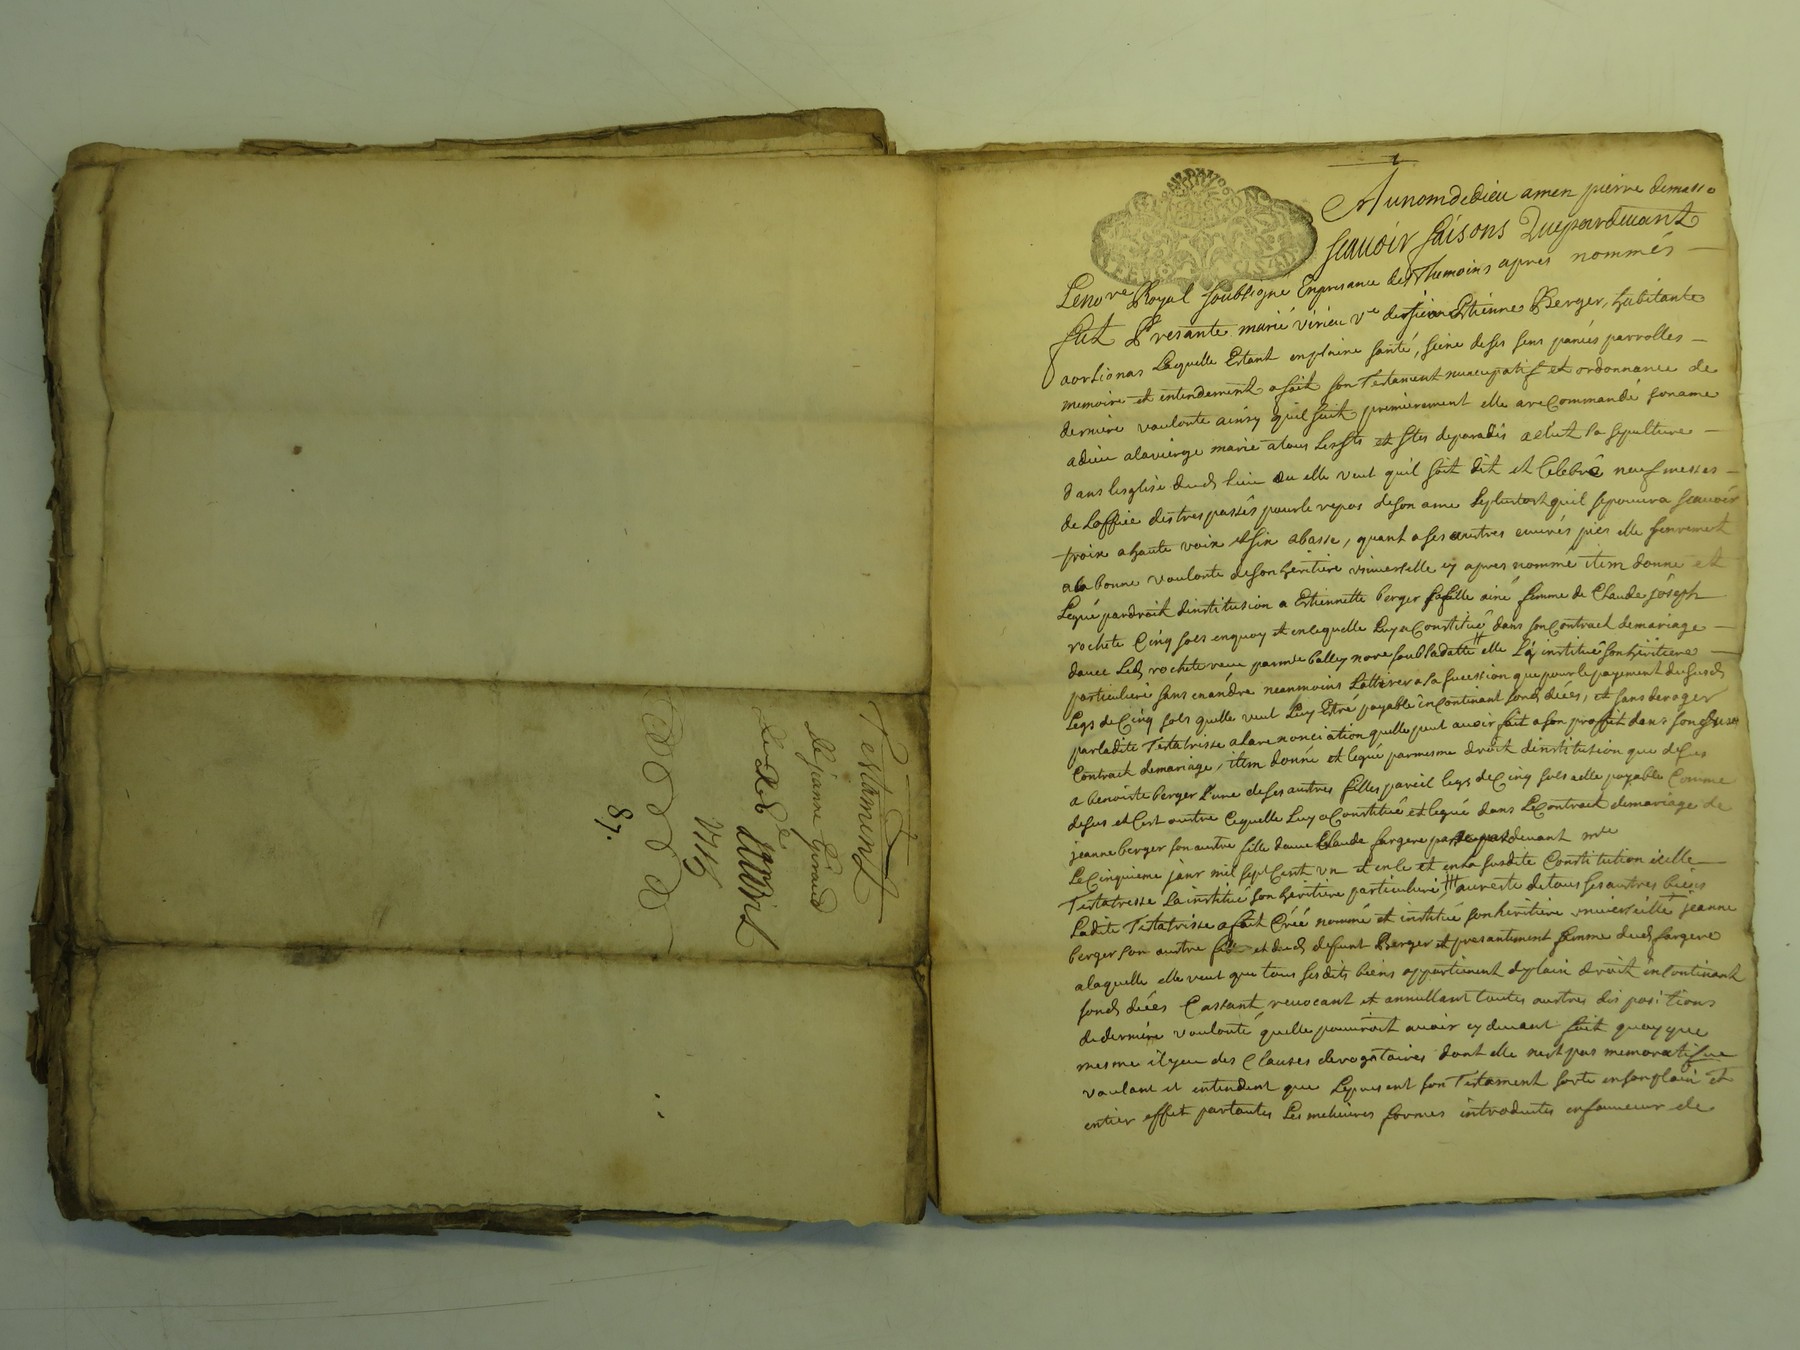 Testament
de jeanne Giraud
87.
Au nom de dieu amen pierre demasso
scauoir faisons Que pardeuant
Le no.re Royal soubsigné En presance des Themoins apres nommés
fut Presante marie virieu v.e de sieur Estienne Berger, habitante
Laquelle Estant en plaine santé, seine de ses sens parolles
memoire et entendement a fait son Testament nuncupatif et ordonnance de
derniere voulonte ainsy quil suit premierement elle a recommandé son ame
a dieu a la vierge marie a tous Les sts et stes de paradis a elut sa sepulture
dans lesglise dud lieu ou elle veut quil soit dit et Celebré neuf messes
de Loffice des trespassés pour le repos de son ame Le plustost quil se pourra scauoir
trois a haute voix et six a basse, quant a ses austres euures pies elle sen remet
a la bonne voulonte de son heritiere vniuerselle cy apres nommé item donne et
Legué par droit dinstitusion a Estiennette berger sa fille ainé femme de Claude joseph
rochete Cinq sols en quoy et en ce quelle Luy a Constitué dans son Contract de mariage
dauec Led rochete receu par m.e balley no.re soubs sa datte elle La institué son heritiere
particuliere sans enandre neanmoins Lattirer a sa sucession que pour le payement du susd
Legs de Cinq sols quelle veut Luy Estre payable incontinant son d decés, et sans deroger
par ladite Testatrisse a la renonciation quelle peut auoir fait a son proffit dans son susd
Contract de mariage, item donné et legué par mesme droit dinstitusion que desus
a benoiste berger Lune de ses austres filles pareil legs de Cinq sols a elle payable Comme
desus et Cest outre Ce quelle Luy a Constitué et legué dans Le Contract de mariage de
jeanne berger son austre fille dauec Claude fargere pardeuant m.re
Le Cinquieme janr mil sept Cent vn et en le et en la susdite Constitution icelle
Testatresse La institué son heritiere particuliere au reste de tous ses autres biens
Ladite Testatrisse a fait Créé nommé et institué son heritiere vniuerselle jeanne
berger son austre fille et dud defunt Berger et presantement femme dud fargere
a laquelle elle veut que tous ses dits biens appartienent de plain droit incontinant
son d decés Cassant reuocant et annullant toutes austres dis positions
de derniere voulonté quelle pourroit auoir cy deuant fait quoy que
mesme il y eu des Clauses derogatoires dont elle nest pas memoratifue
voulant et entendent que Le present son Testament sorte en son plain et
entier effet par toutes Les melieures formes introduites en faueur de